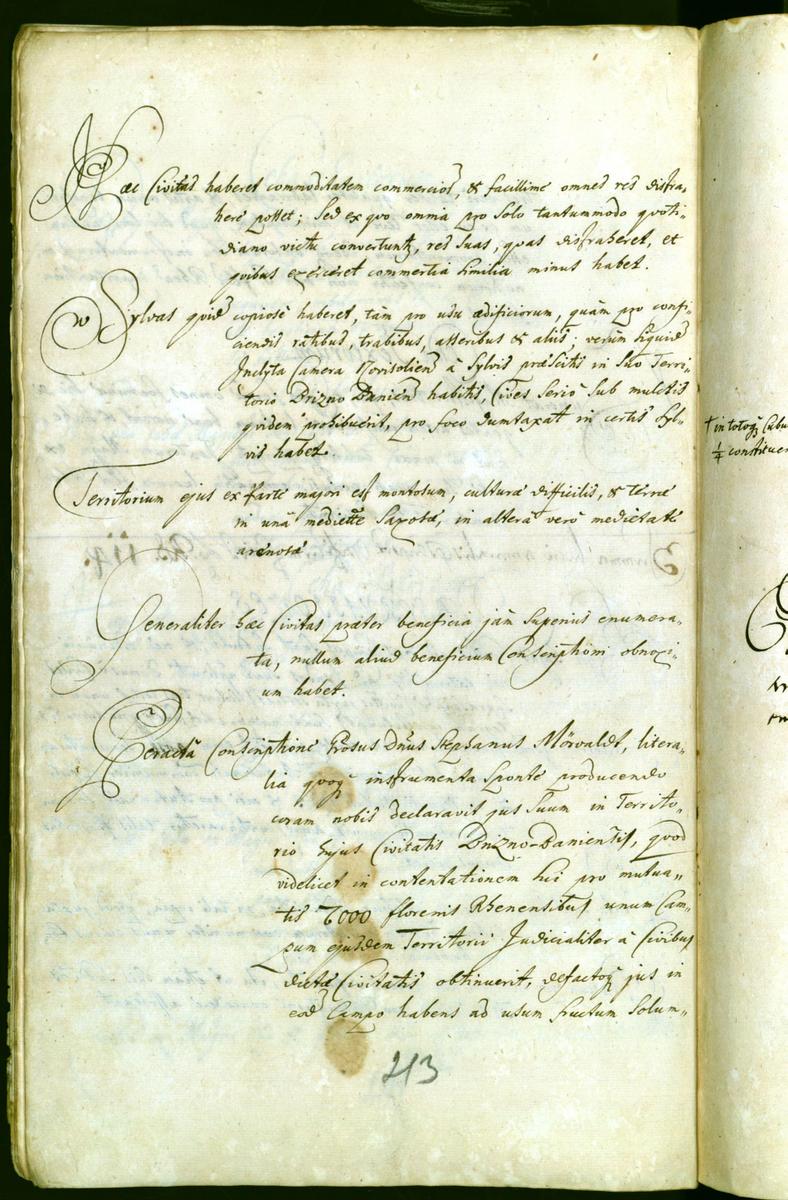 Hæc Civitas haberet commoditatem commercior, & facillime omnes res distra-
here posset; Sed ex quo omnia pro Solo tantummodo quoti-
diano victu convertunt, res suas, quas distraheret, et
quibus exerceret commertia similia minus habet.
Sylvas quid copiose haberet, tam pro usu ædificiorum, quàm pro confi-
ciendis ratibus, trabibus, asseribus & aliis; verùm siquid
Inclyta Camera Novisolien à Sylvis præscitis in suo Terri-
torio Brizno Banien habitis, Cives Seriò Sub mulctis
quidem prohibuerit, pro foco dumtaxat in certis Syl-
vis habet.
Territorium ejus ex parte majori est montosum, culturæ difficilis, & terræ
in unâ mediette Saxosæ, in alterâ verò medietate
arenosæ
Generaliter hæc Civitas præter beneficia jam Superius enumera-
ta, nullum aliud beneficium Conscriptioni obnoxi-
um habet.
Peractâ Conscriptione Grosus Dnus Stephanus Mörvaldt, litera-
lia quoq instrumenta Sponte producendo
coram nobis declaravit jus Suum in Territo-
rio hujus Civitatis Brizno-Baniensis, quod
videlicet in contentationem sui pro mutua-
tis 7000 florenis Rhenensibus unum Cam-
pum ejusdem Territorii Judicialiter à Civibus
dictæ Civitatis obtinuerit, defactoq jus in
eod Campo habens ad usum fructum Solum-
213
† in totoq Cubu
1/4 constituen